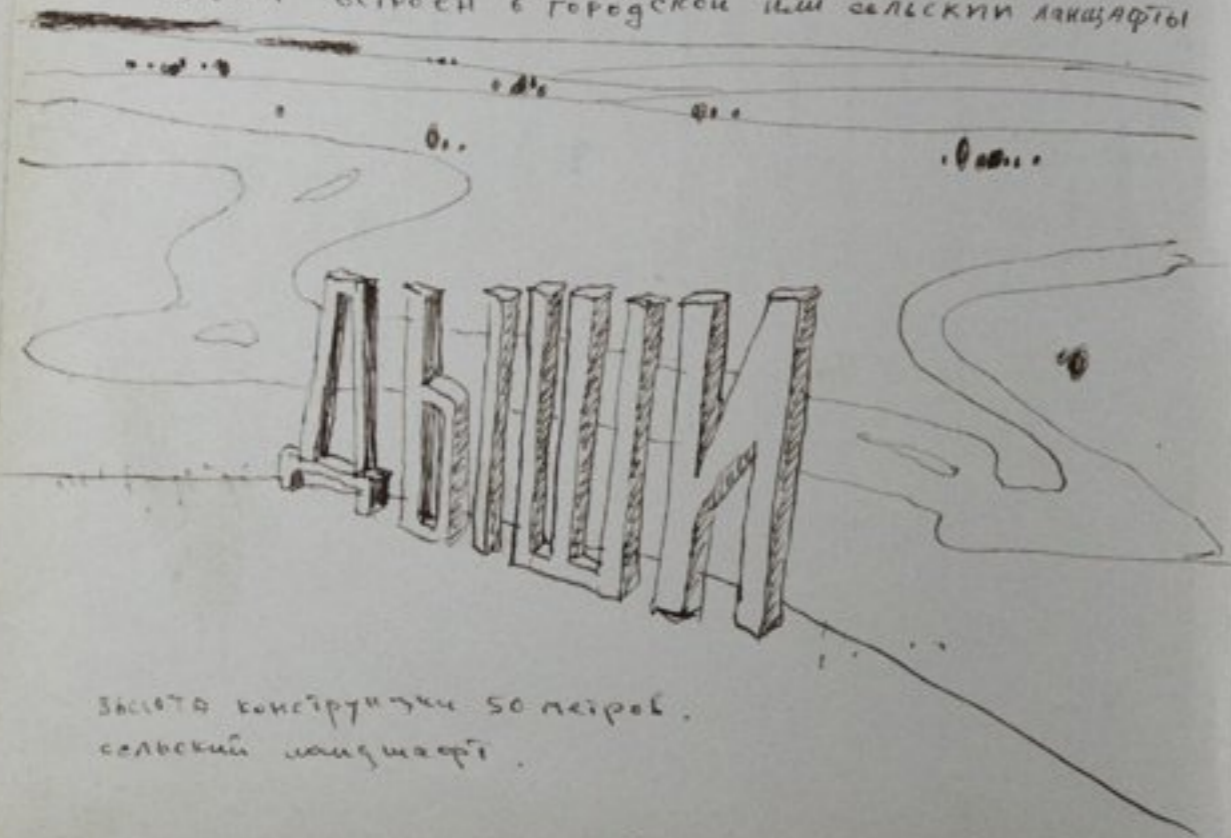 встроен в городской или сельский ланщафты
ДЫШИ
высота конструкции 50 метров.
сельский ландшафт.